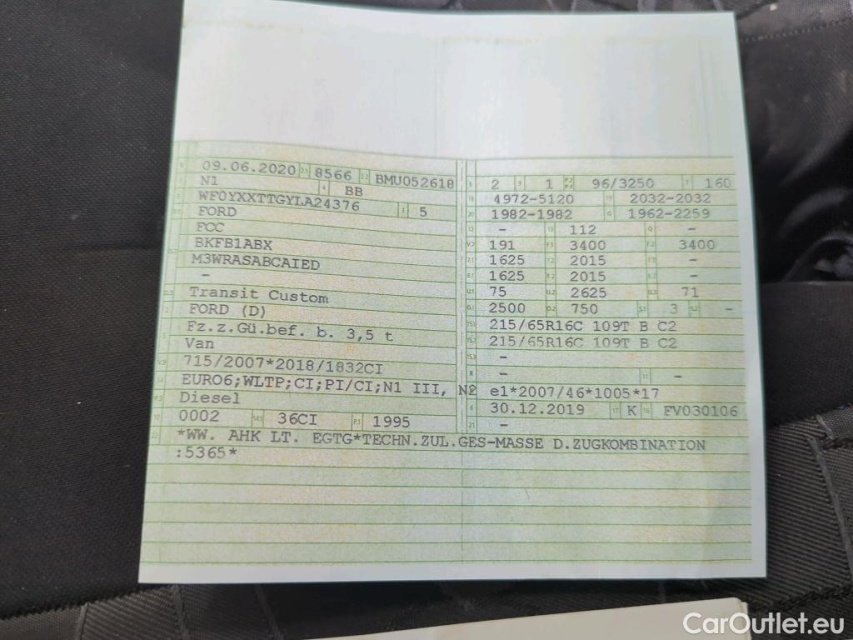 09.06.2020 8566 BMU052618
N1 BB
WF0YXXTTGYLA24376 5
FORD
FCC
BKFB1ABX
M3WRASABCAIED
-
Transit Custom
FORD (D)
Fz.z.Gü.bef. b. 3,5 t
Van
715/2007*2018/1832CI
EURO6;WLTP;CI;PI/CI;N1 III, N2
Diesel
0002 36CI 1995
2 1 96/3250 160
4972-5120 2032-2032
1982-1982 1962-2259
- 112 -
191 3400 3400
1625 2015 -
1625 2015 -
75 2625 71
2500 750 3 -
215/65R16C 109T B C2
215/65R16C 109T B C2
-
- -
e1*2007/46*1005*17
30.12.2019 K FV030106
-
*WW. AHK LT. EGTG*TECHN.ZUL.GES-MASSE D.ZUGKOMBINATION
:5365*
CarOutlet.eu